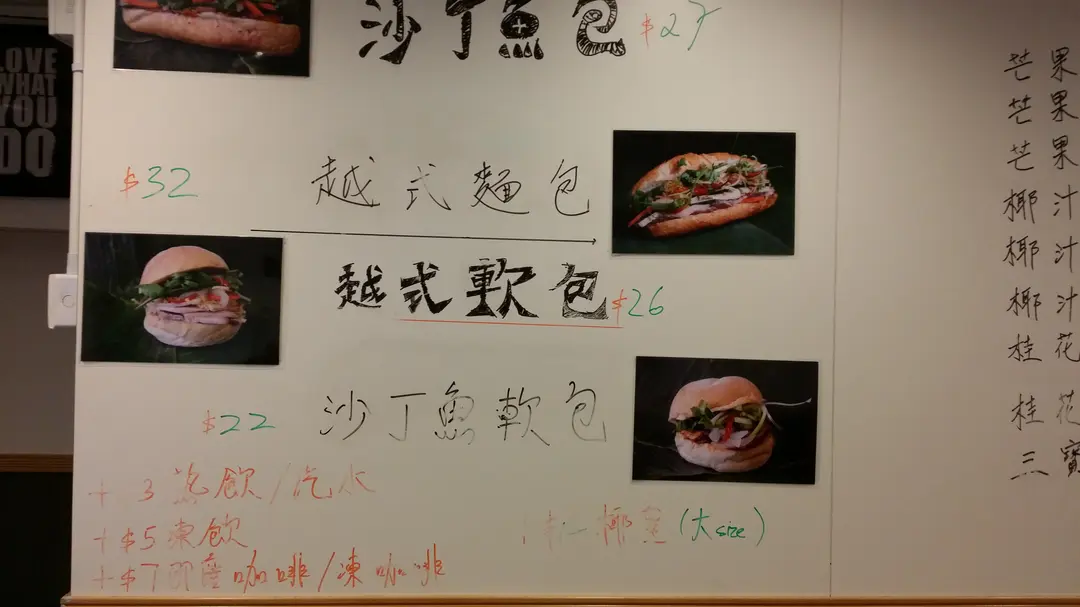 LOVE
WHAT
YOU
DO
沙丁魚包 $27
$32 越式麵包
越式軟包 $26
$22 沙丁魚軟包
+ 3 熱飲/汽水
+$5 凍飲
+$7 即磨咖啡/凍咖啡
椰皇(大size)
芒果
芒果
芒果
椰汁
椰汁
椰汁
桂花
桂花
三寶